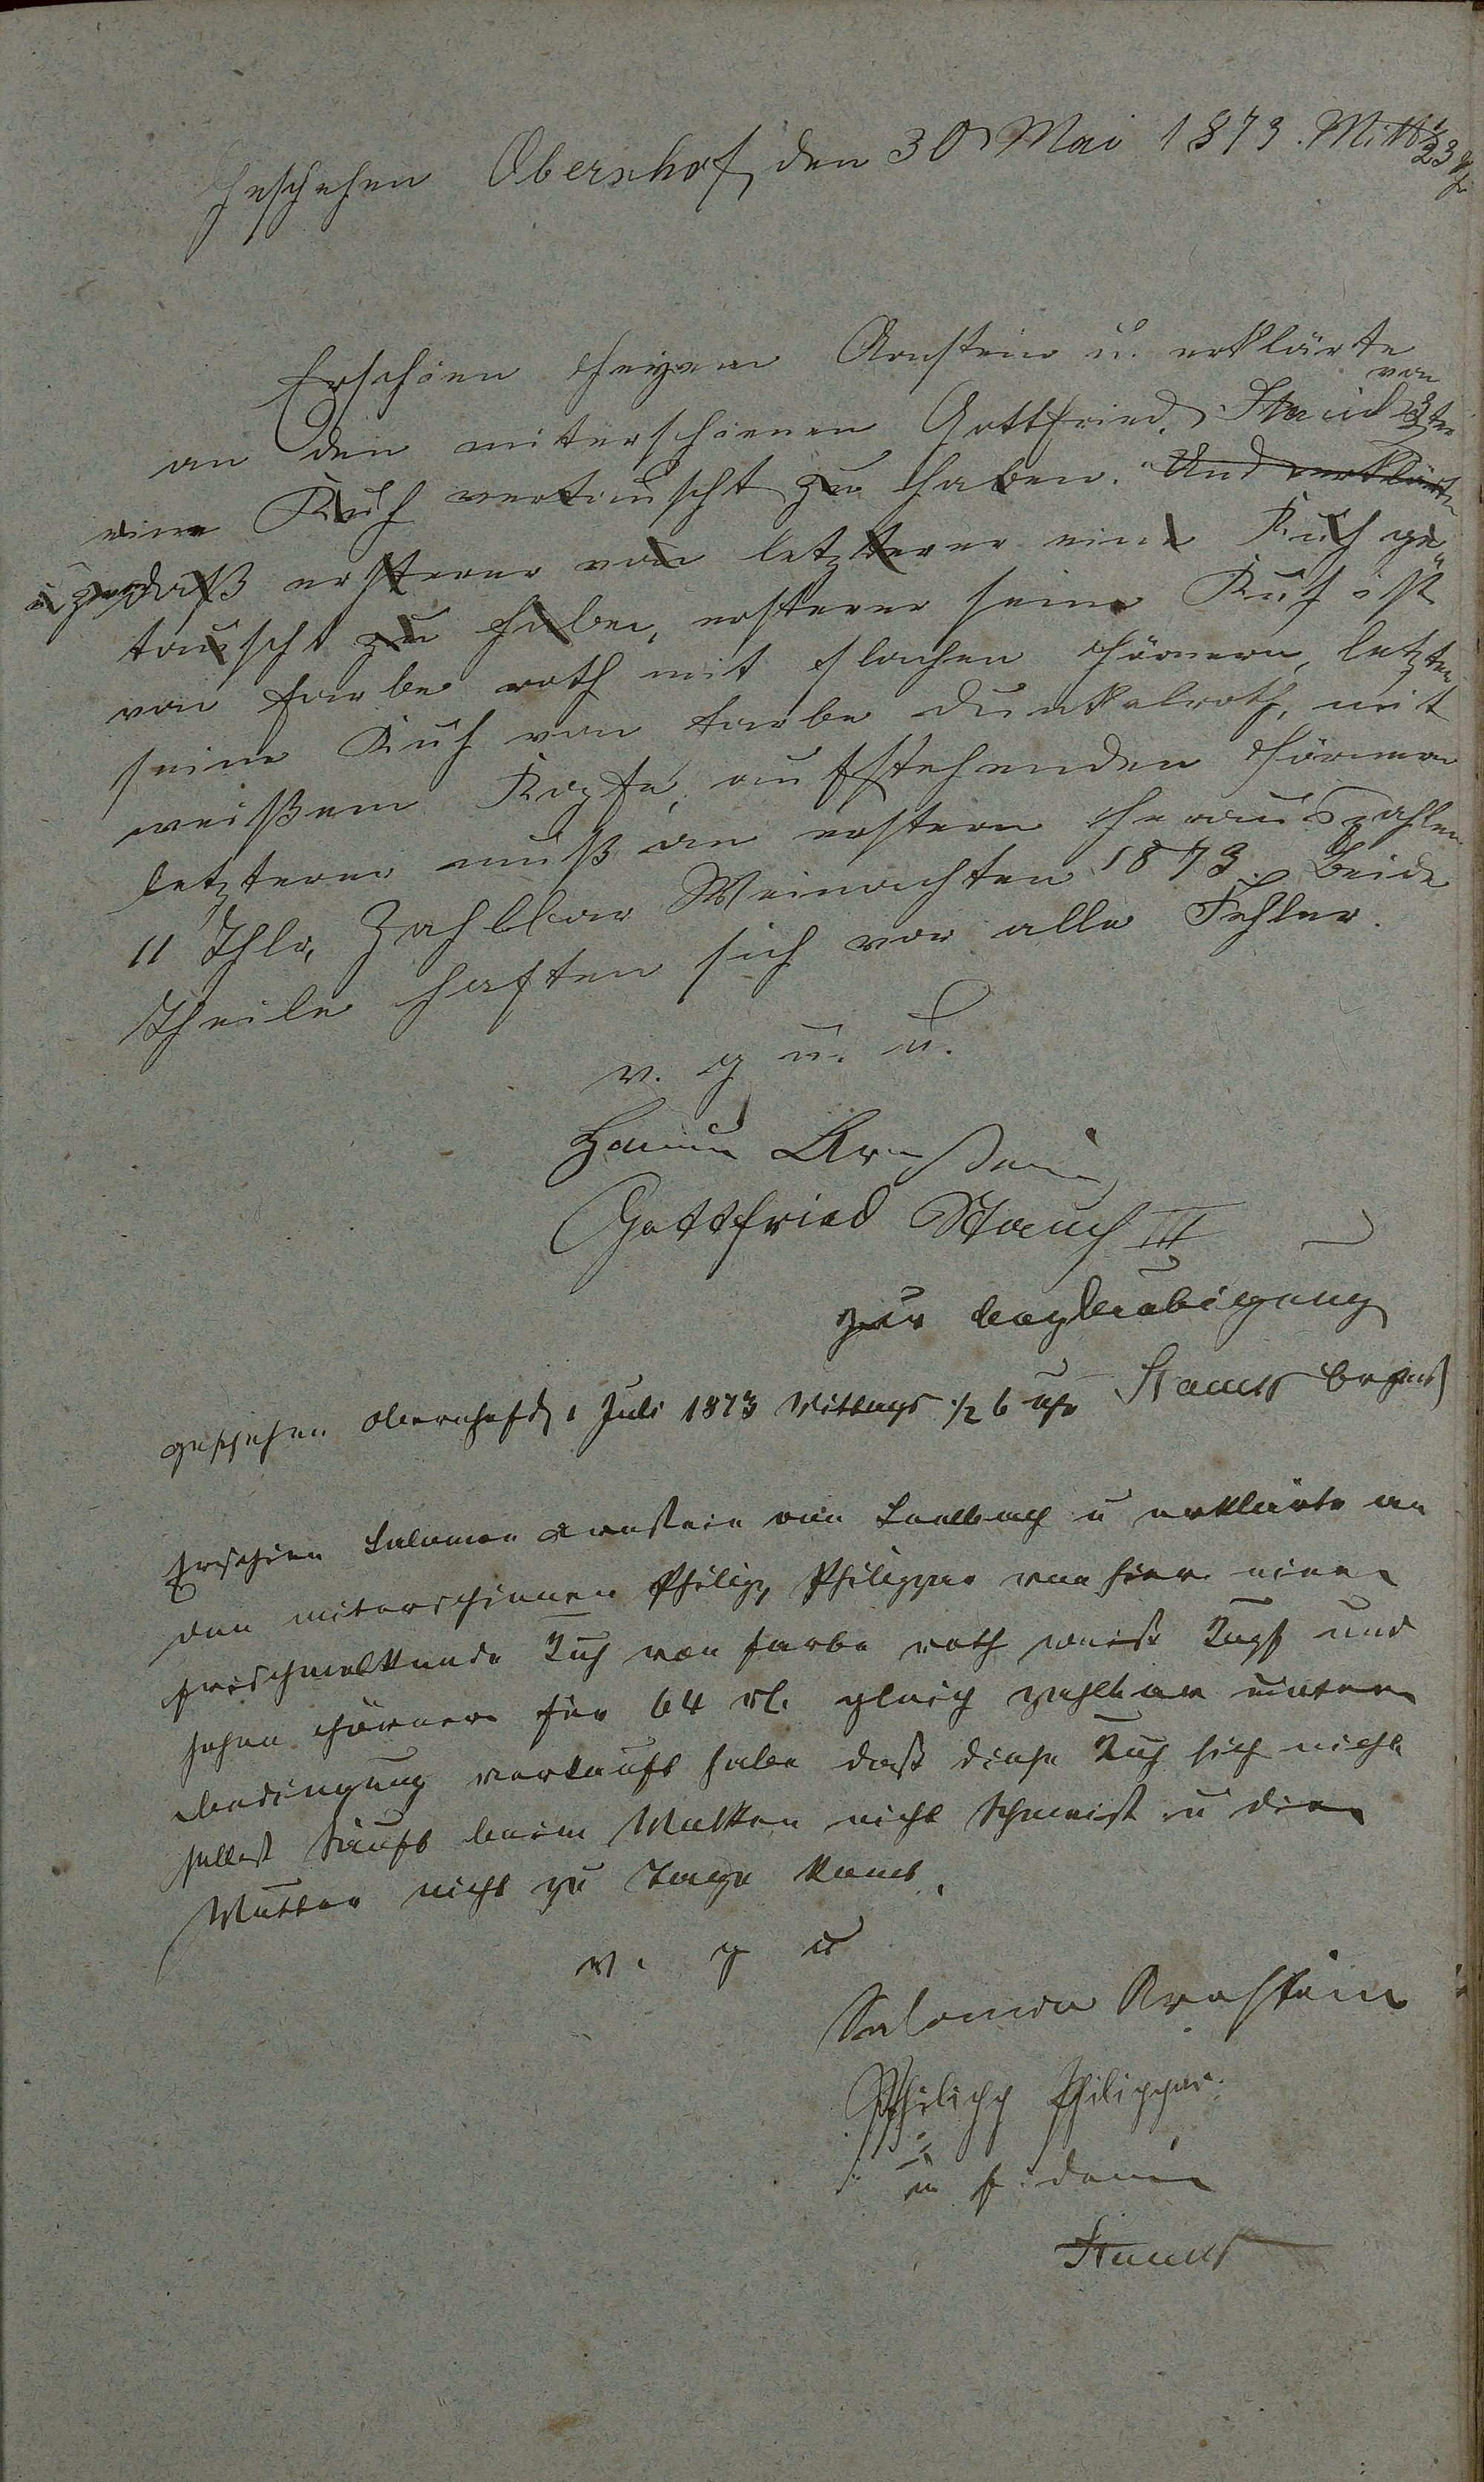 Geschehen Obernhof, den 30 Mai 1873. Mitt ½3
Erschien Heyem Arnstein u. erklärte
an den miterschienen Gottfried Stauch 3ter von
eine Kuh vertauscht zu haben. Und erklärte
daß ersterer von letzterer eine Kuh ge
tauscht zu haben, ersterer seine Kuh ist
von Farbe roth mit flachen Hörnern, letzter
seine Kuh von Farbe dunkelroth, mit
weißem Kopfe, aufstehenden Hörnern
letzterer muß an erstern herauszahlen
11 Thlr, Zahlbar Weinachten 1873. Beide
Theile haften sich vor alle Fehler.
v. g u. u.
Arnstein
Gottfried Stauch III
zur Beglaubigung
geschehen Obernhof d 1 Juli 1873 Mittags ½ 6 Uhr
Stauch
Erschien Salomon Arnstein von u erklärte an
den miterschienen Philipp Philippar von hier eine
frischmelkende Kuh von Farbe roth weiß Kopf und
hohen Hörner für 64 rl. gleich zahlbar unter
Bedingung verkauft habe daß diese Kuh sich nicht
selbst Sauft beim Melken nicht Schmeist u die
Mutter nicht zu Tage komt.
v. g u
Salomon Arnstein
Philipp Philippar
in f. dem
Stauch